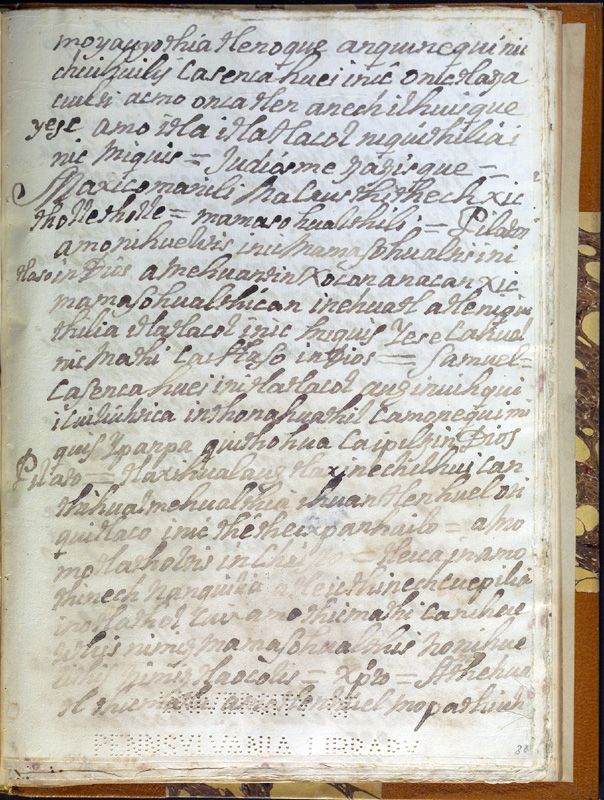 moyauyothia tlenoque anquinequi nic
chiuhuilis Casenca huei inic onictlaxa
cuiti acmo onca tlen anechilhuisque
yese amo itla itlatlacol niquithilia i
nic miquis = Judiosme yayisque =
Maxicomanili Macrusthithech xic
tholtetholte = mamasohualthili = Pilatos
amo nihuelitis inic mamasohualtis ini
tlaso in Dios amehuantin Xoconanacan xic
mamasohualthican inehuatl atle niqui
thilia itlatlacol inic miquis Yese Cahuel
nic mathi Ca itlaso in Dios = Samuel =
Casenca huei initlatlacol auh in iuhqui
icuiliuhtica inthonahuathil Camonequi mi
quis Ypanpa quithohua Caipiltzin Dios
Pilato = tlaxihualauh tlaxinechilhui can
thihualmehualthia ihuan tlen huel oti
quitlaco inic thetheixpanhuilo = amo
motlatholtis in Chris = tleica in amo
thinech nanquilia atleic thinechcuepilia
inotlathol Cuix amo thicmathi canihue
lithis nimitz mamasohualthis nonihue
lithis nimitz tlaocolis = Xpto = Athehua
tl thicmathi atle tlen huel mopathiuh
PENNSYLVANIA LIBRARY